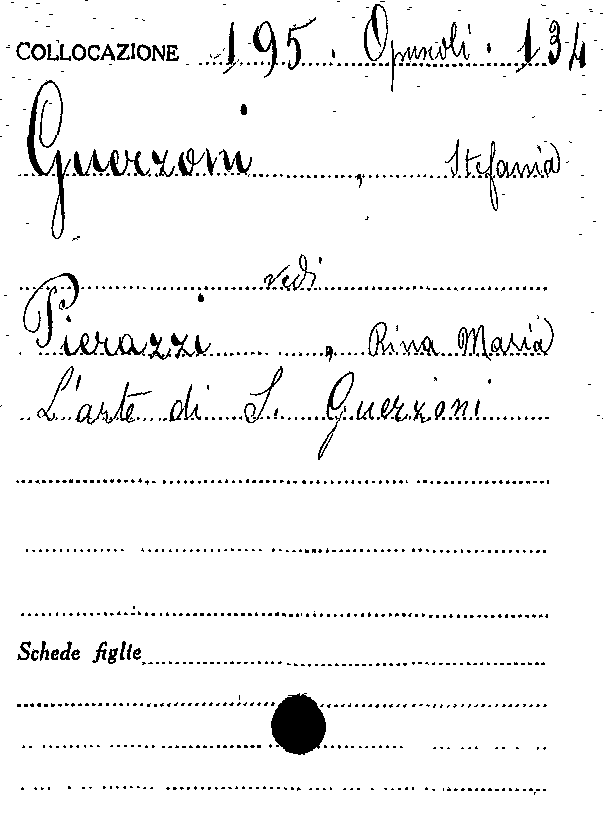 COLLOCAZIONE 195. Opuscoli. 134
Guerzoni, Stefania
vedi
Pierazzi, Rina Maria
L'arte di S. Guerzoni
Schede figlie